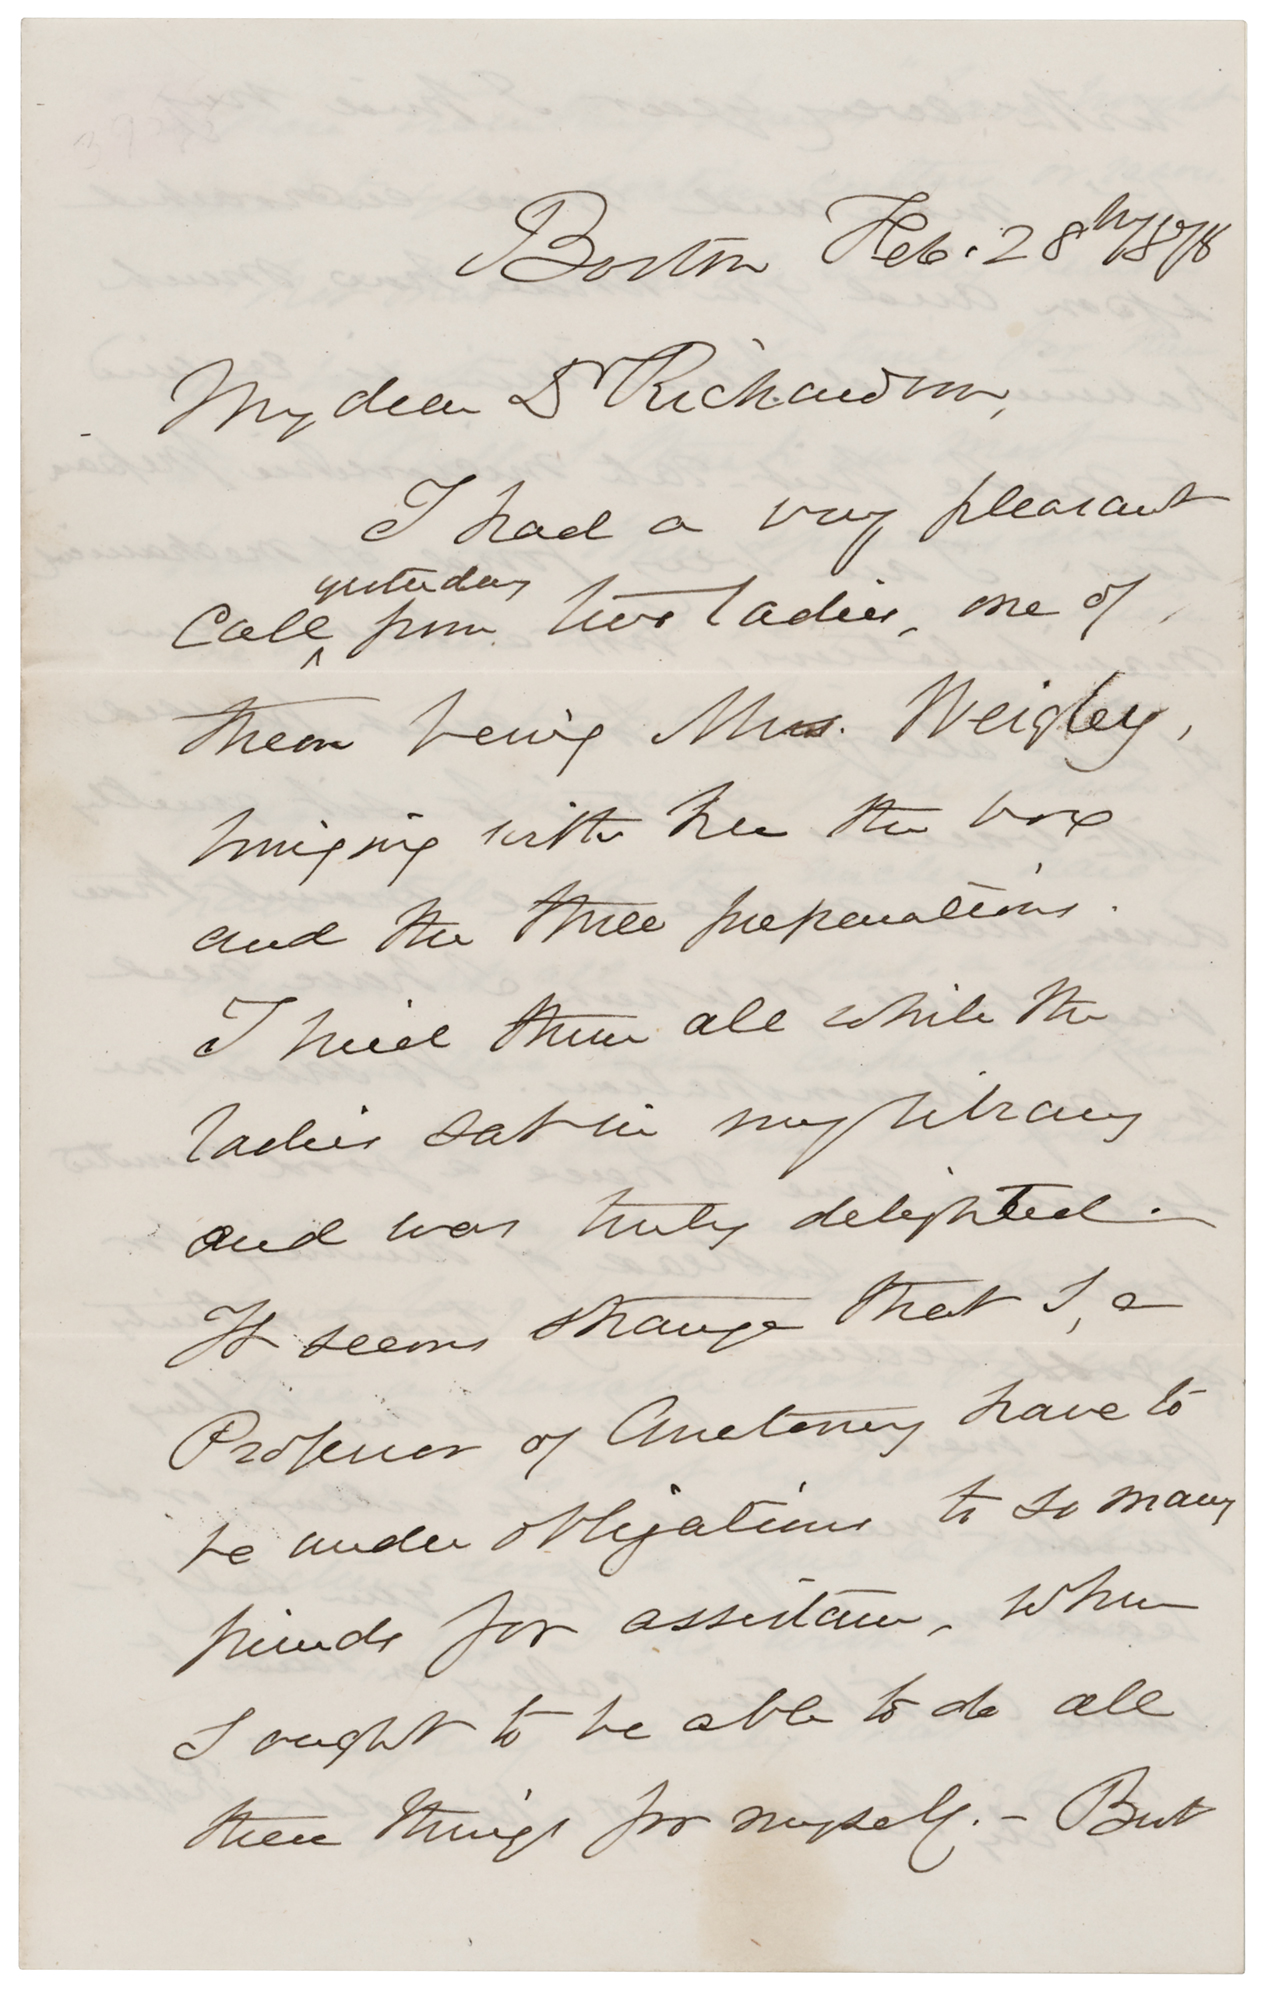 Boston Feb. 28th/1878
My dear Dr Richardson,
I had a very pleasant
yesterday
Call ^ from two ladies, one of
them being Mrs. Weigley,
bringing with her the box
and the three preparations.
I tried them all while the
ladies sat in my library
and was truly delighted. —
It seems strange that I, a
Professor of Anatomy have to
be under obligations to so many
friends for assistance, when
I ought to be able to do all
these things for myself. – But